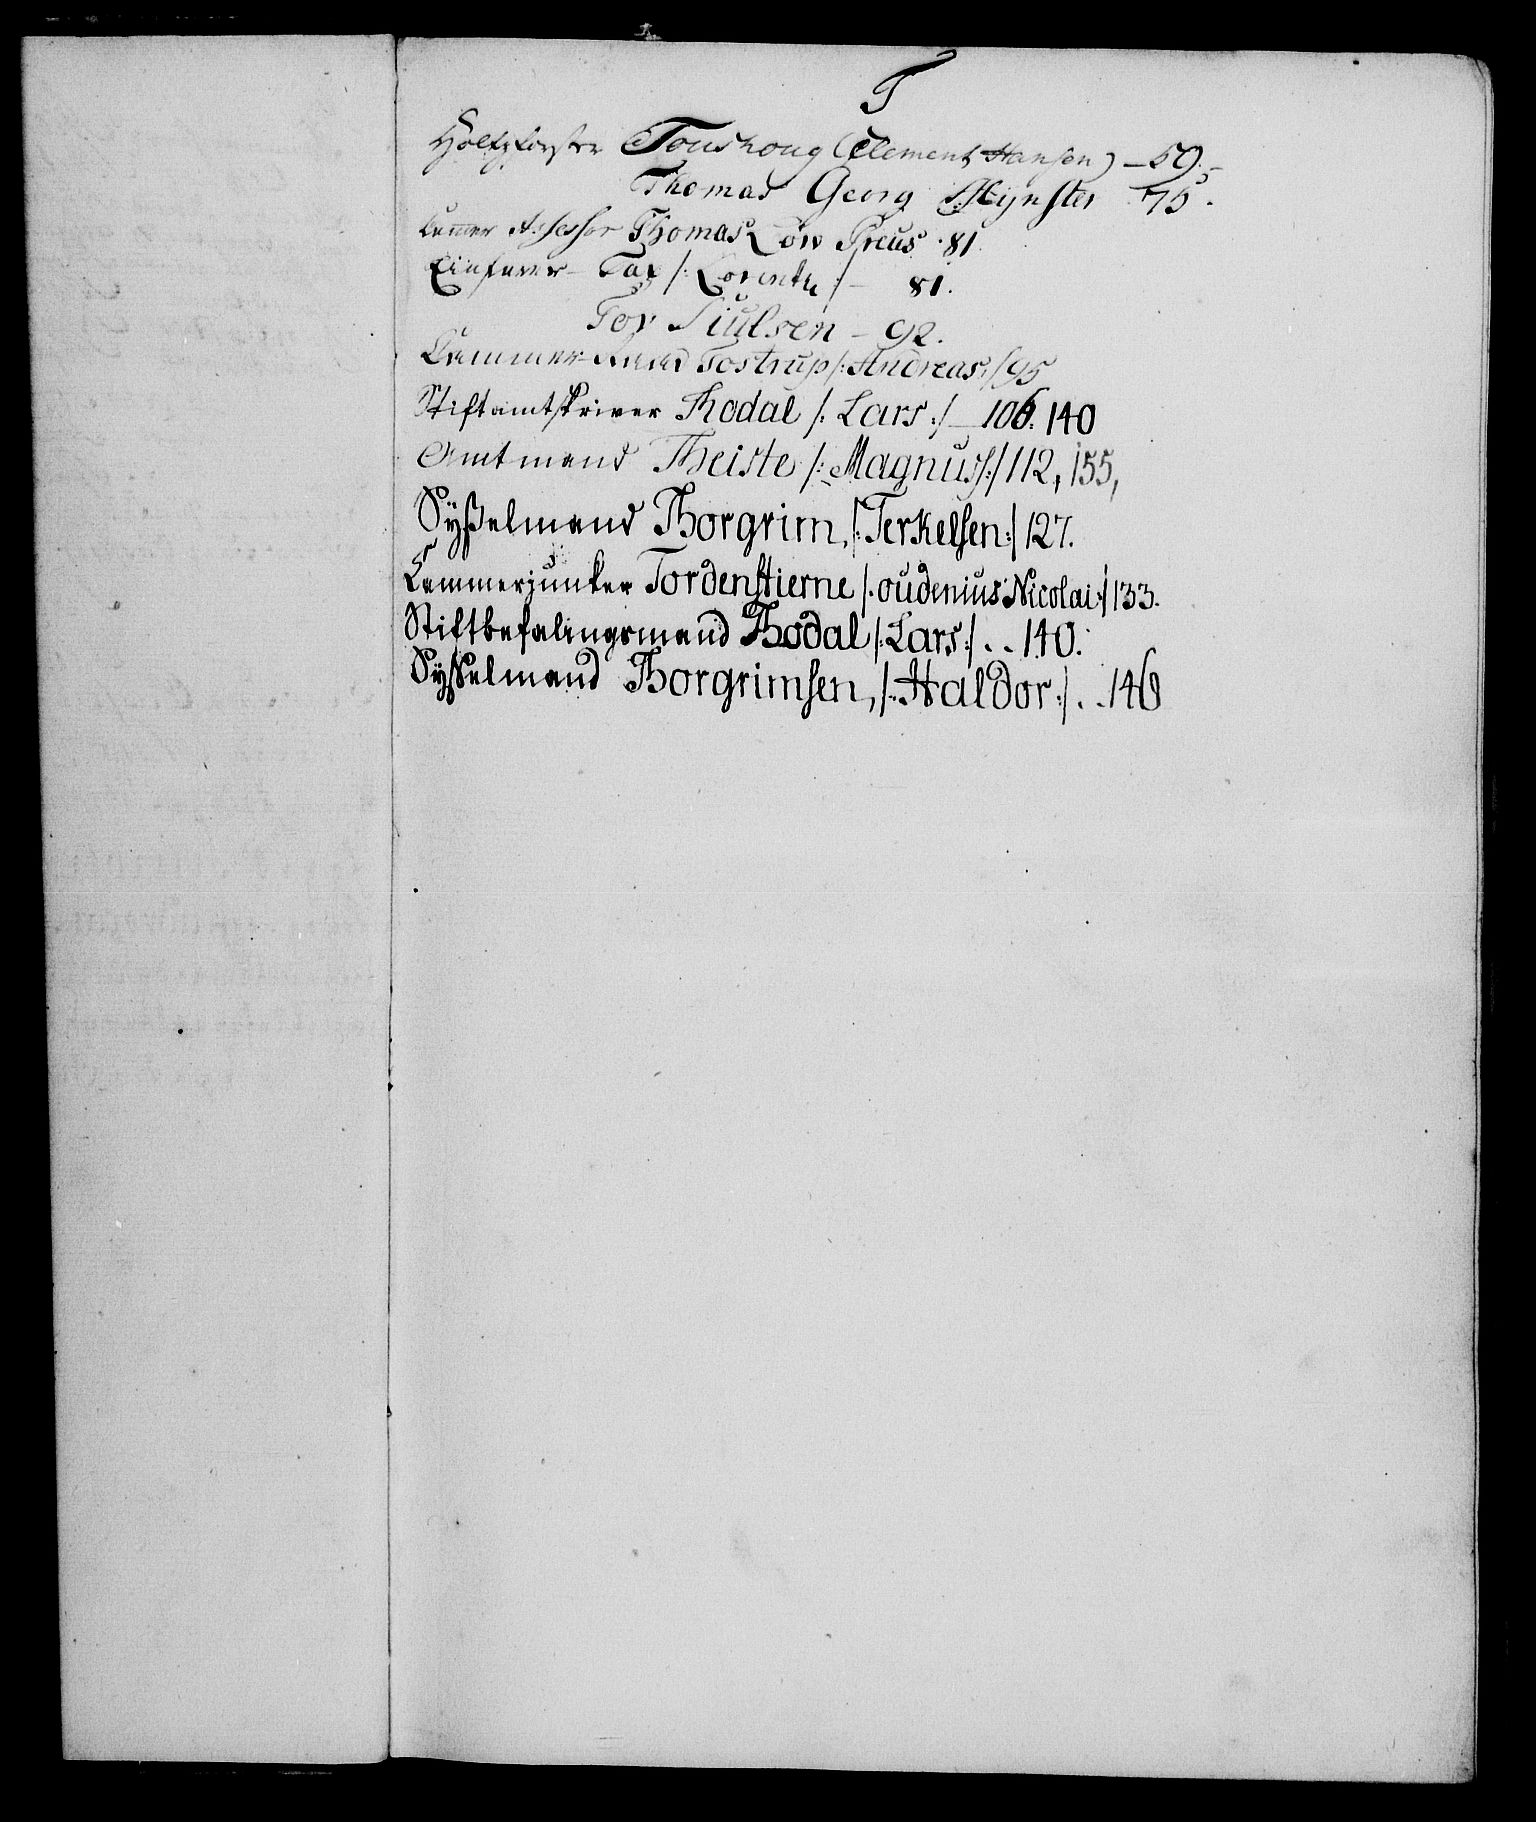 T
Holtzforster Toushoug (Clement Hansen) – 59.
Thomas Georg Mynster 75.
Cammer Assessor Thomas Löw Preus . 81
Tax /: Lorentz :/ – 81.
Tor Siulsen – 92.
Cammer-Raad Tostrup /: Andreas :/ 95
Stiftamtskriver Thodal /: Lars :/ – 106. 140
Amtmand Theiste /: Magnus :/ 112, 155,
Sysselmand Thorgrim, /: Terkelsen :/ 127.
Cammerjunker Tordenstierne /: oudenius Nicolai :/ 133.
Stiftbefalingsmand Thodal /: Lars :/ . . 140.
Sysselmand Thorgrimsen, /: Haldor :/ . . 146